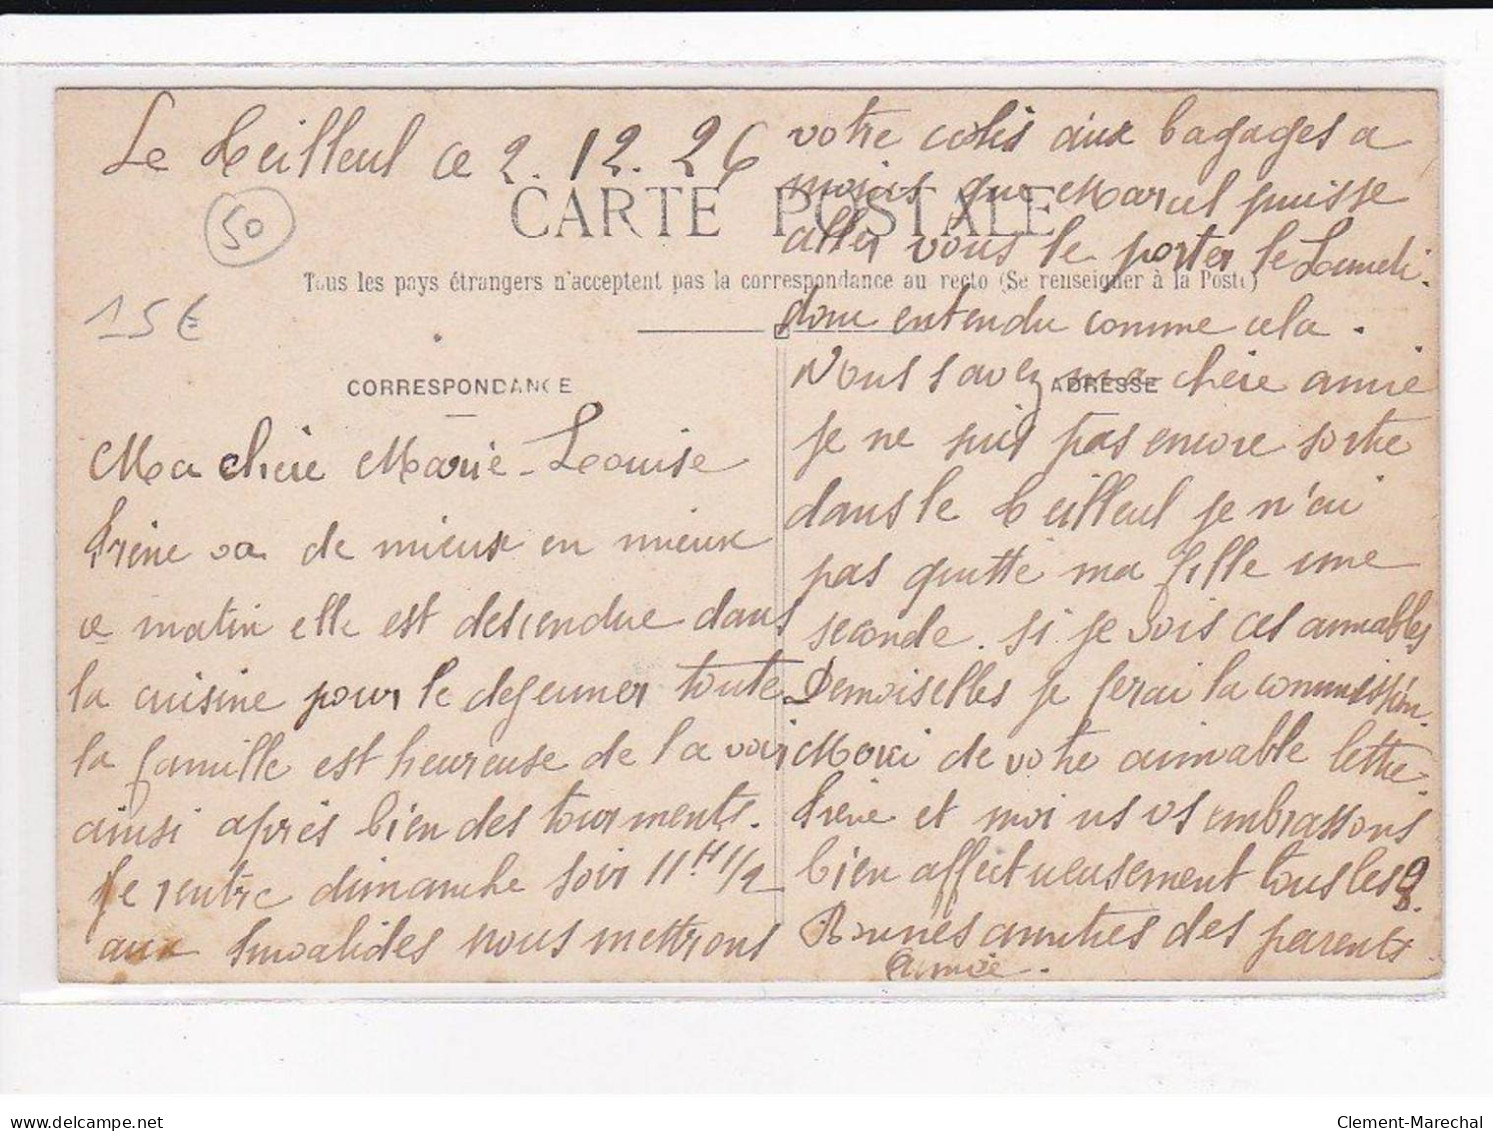 Le Teilleul ce 2.12.26
50
15€
CARTE POSTALE
Tous les pays étrangers n'acceptent pas la correspondance au recto (Se renseigner à la Poste)
CORRESPONDANCE
Ma chère Marie-Louise
Irène va de mieux en mieux
ce matin elle est descendue dans
la cuisine pour le dejeuner toute
la famille est heureuse de la voir
ainsi après bien des tourments.
Je rentre dimanche soir 11H 1/2
aux Invalides nous mettrons
votre colis aux bagages a
moins que Marcel puisse
aller vous le porter le Lundi.
donc entendu comme cela.
ADRESSE
Vous savez ma chère amie
je ne suis pas encore sortie
dans le Teilleul je n'ai
pas quitté ma fille une
seconde. si je vois ces aimables
Demoiselles je ferai la commission.
Merci de votre aimable lettre.
Irène et moi ns vs embrassons
bien affectueusement tous les
Bonnes amitiés des parents
Aimée.
Clement-Marechal